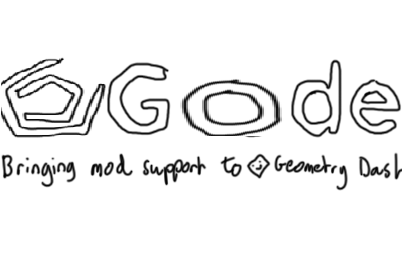 Gode
Bringing mod support to Geometry Dash